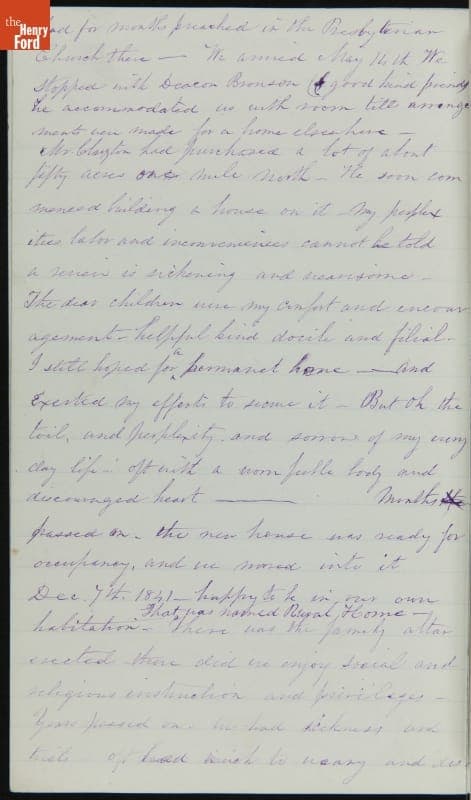 the
Henry
Ford
had for months preached in the Presbyterian
Church there — We arrived May 14th We
stopped with Deacon Bronson & good kind friends
he accommodated us with room till arrange
ment was made for a home elsewhere —
Mr. Clayton had purchased a lot of about
fifty acres one mile north — He soon com
menced building a house on it My perplex
ities labor and inconveniences cannot be told
a review is sickening and wearisome —
The dear children were my comfort and encour
agement — helpful kind docile and filial.
I still hoped for a permanet home — and
Exerted my efforts to secure it — But Oh the
toil, and perplexity and sorrow of my every
day life — oft with a worn feble body and
discouraged heart ——— Months
passed on — the new house was ready for
occupancy, and we moved into it
Dec. 7th 1841 — happy to be in our own
That was named Rural Home —
habitation — There was the family altar
erected there did we enjoy social and
religious instruction and privileges —
Years passed on we had sickness and
trials oft had much to weary and dis